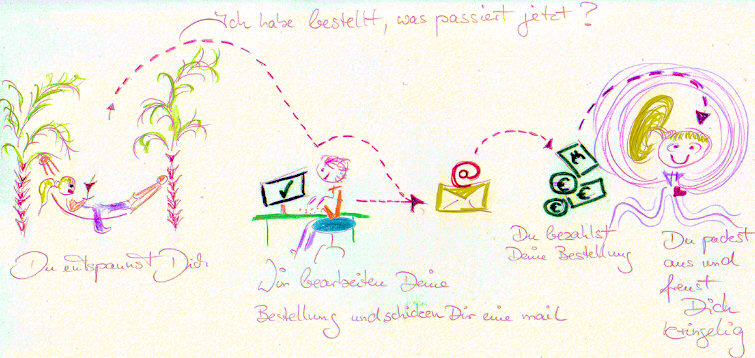 Ich habe bestellt, was passiert jetzt?
@
€
€
€
Du entspannst Dich
Wir bearbeiten Deine
Bestellung und schicken Dir eine mail
Du bezahlst
Deine Bestellung
Du packst
aus und
freust
Dich
kringelig